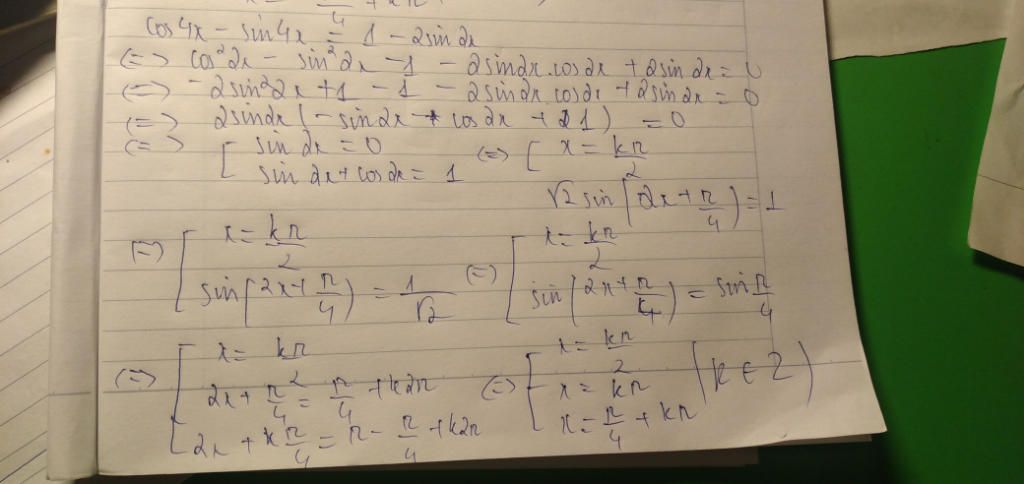 π/4 + kπ
cos4x - sin4x = 1 - 2sin2x
(=) cos²2x - sin²2x - 1 - 2sin2x.cos2x + 2sin2x = 0
(=) -2sin²2x + 1 - 1 - 2sin2x cos2x + 2sin2x = 0
(=) 2sin2x (-sin2x - cos2x + 1) = 0
(=) [ sin2x = 0 (=) [ x = kπ/2
sin2x + cos2x = 1 √2 sin(2x + π/4) = 1
(=) [ x = kπ/2 (=) [ x = kπ/2
sin(2x + π/4) = 1/√2 sin(2x + π/4) = sin π/4
(=) [ x = kπ/2 (=) [ x = kπ/2 (k ∈ Z)
2x + π/4 = π/4 + k2π x = kπ
2x + π/4 = π - π/4 + k2π x = π/4 + kπ